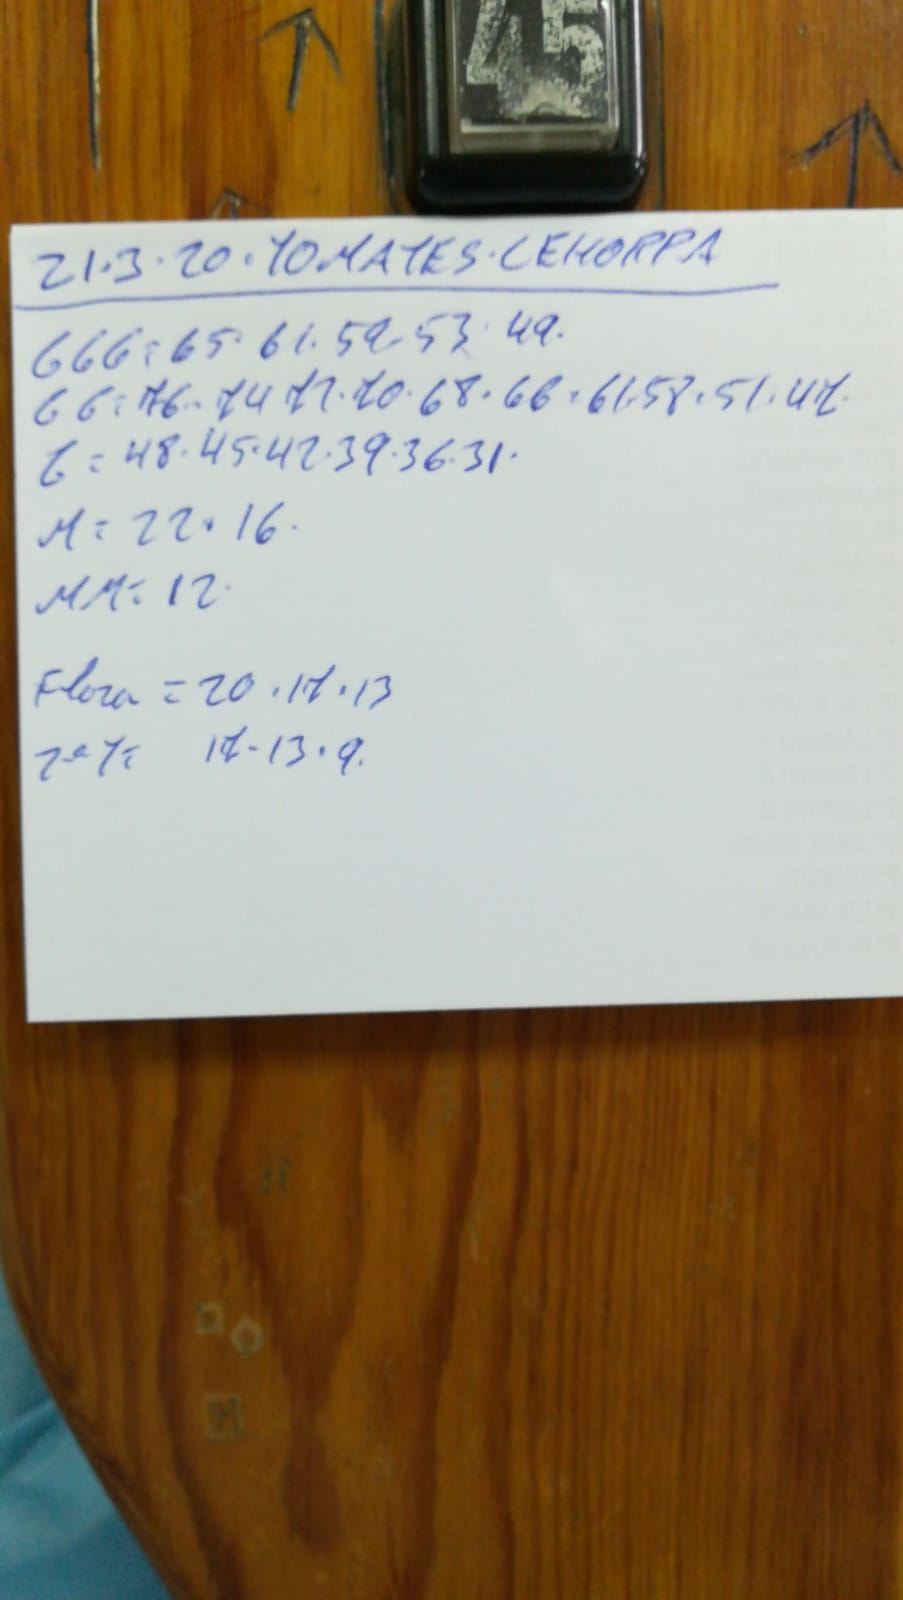 45
21.3.20.TOMATES.CEHORPA
GGG=65.61.59.53.49.
GG=76.74 72.70.68.66.61.58.51.47.
G=48.45.42.39.36.31.
M=22.16.
MM=12.
Flora=20.17.13
2ªT= 17.13.9.